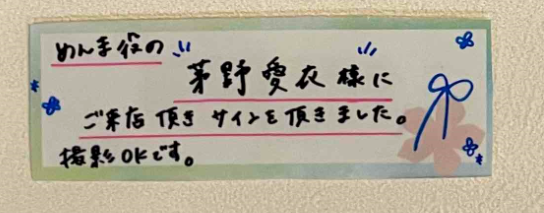 めんま役の
茅野愛衣様に
ご来店頂きサインを頂きました。
撮影OKです。